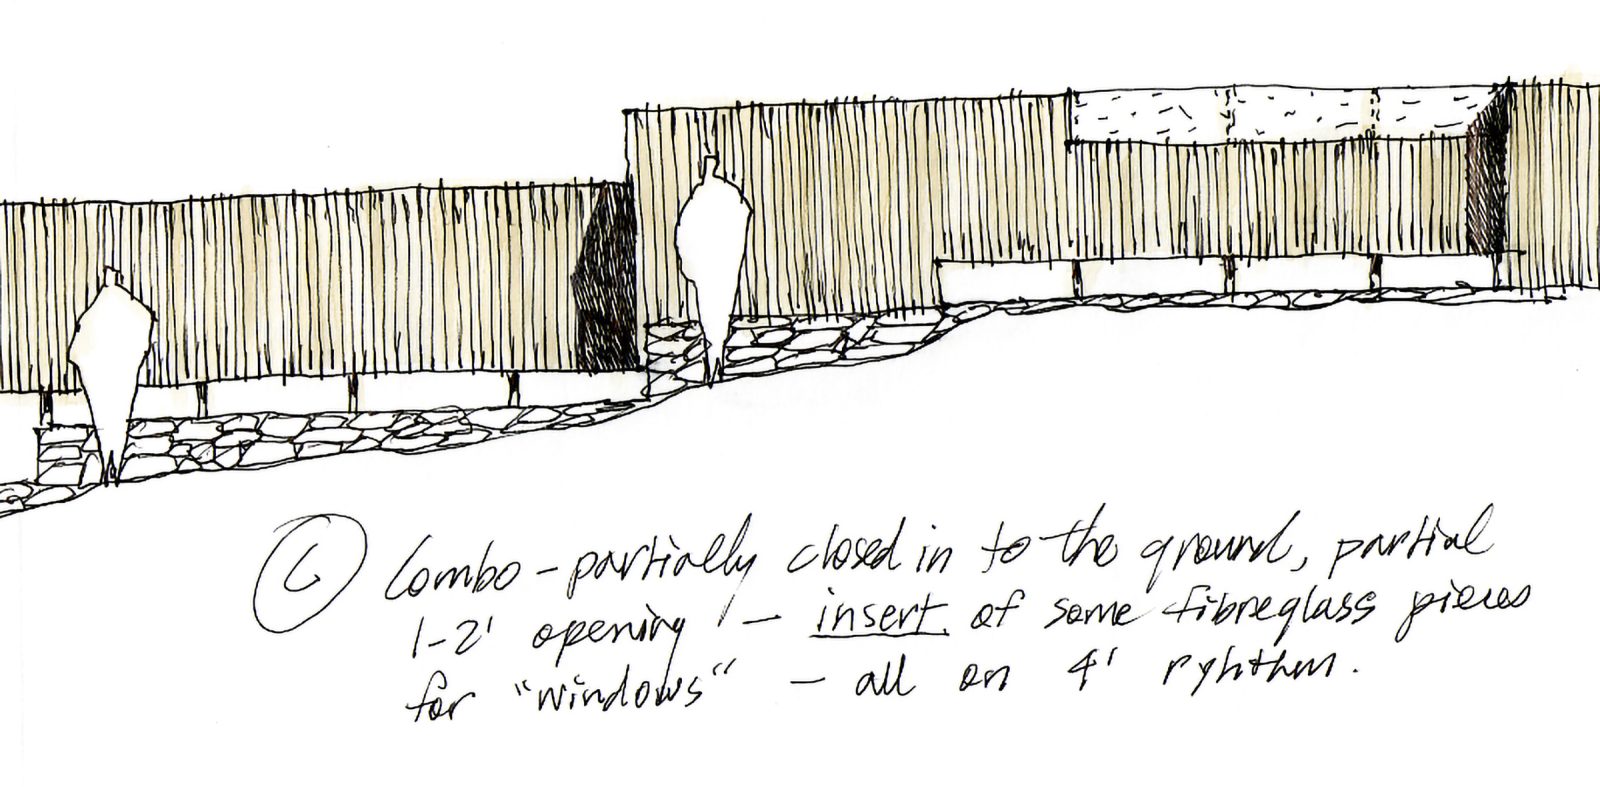 C Combo - partially closed in to the ground, partial
1-2' opening - insert of some fibreglass pieces
for "windows" - all on 4' ryhthm.